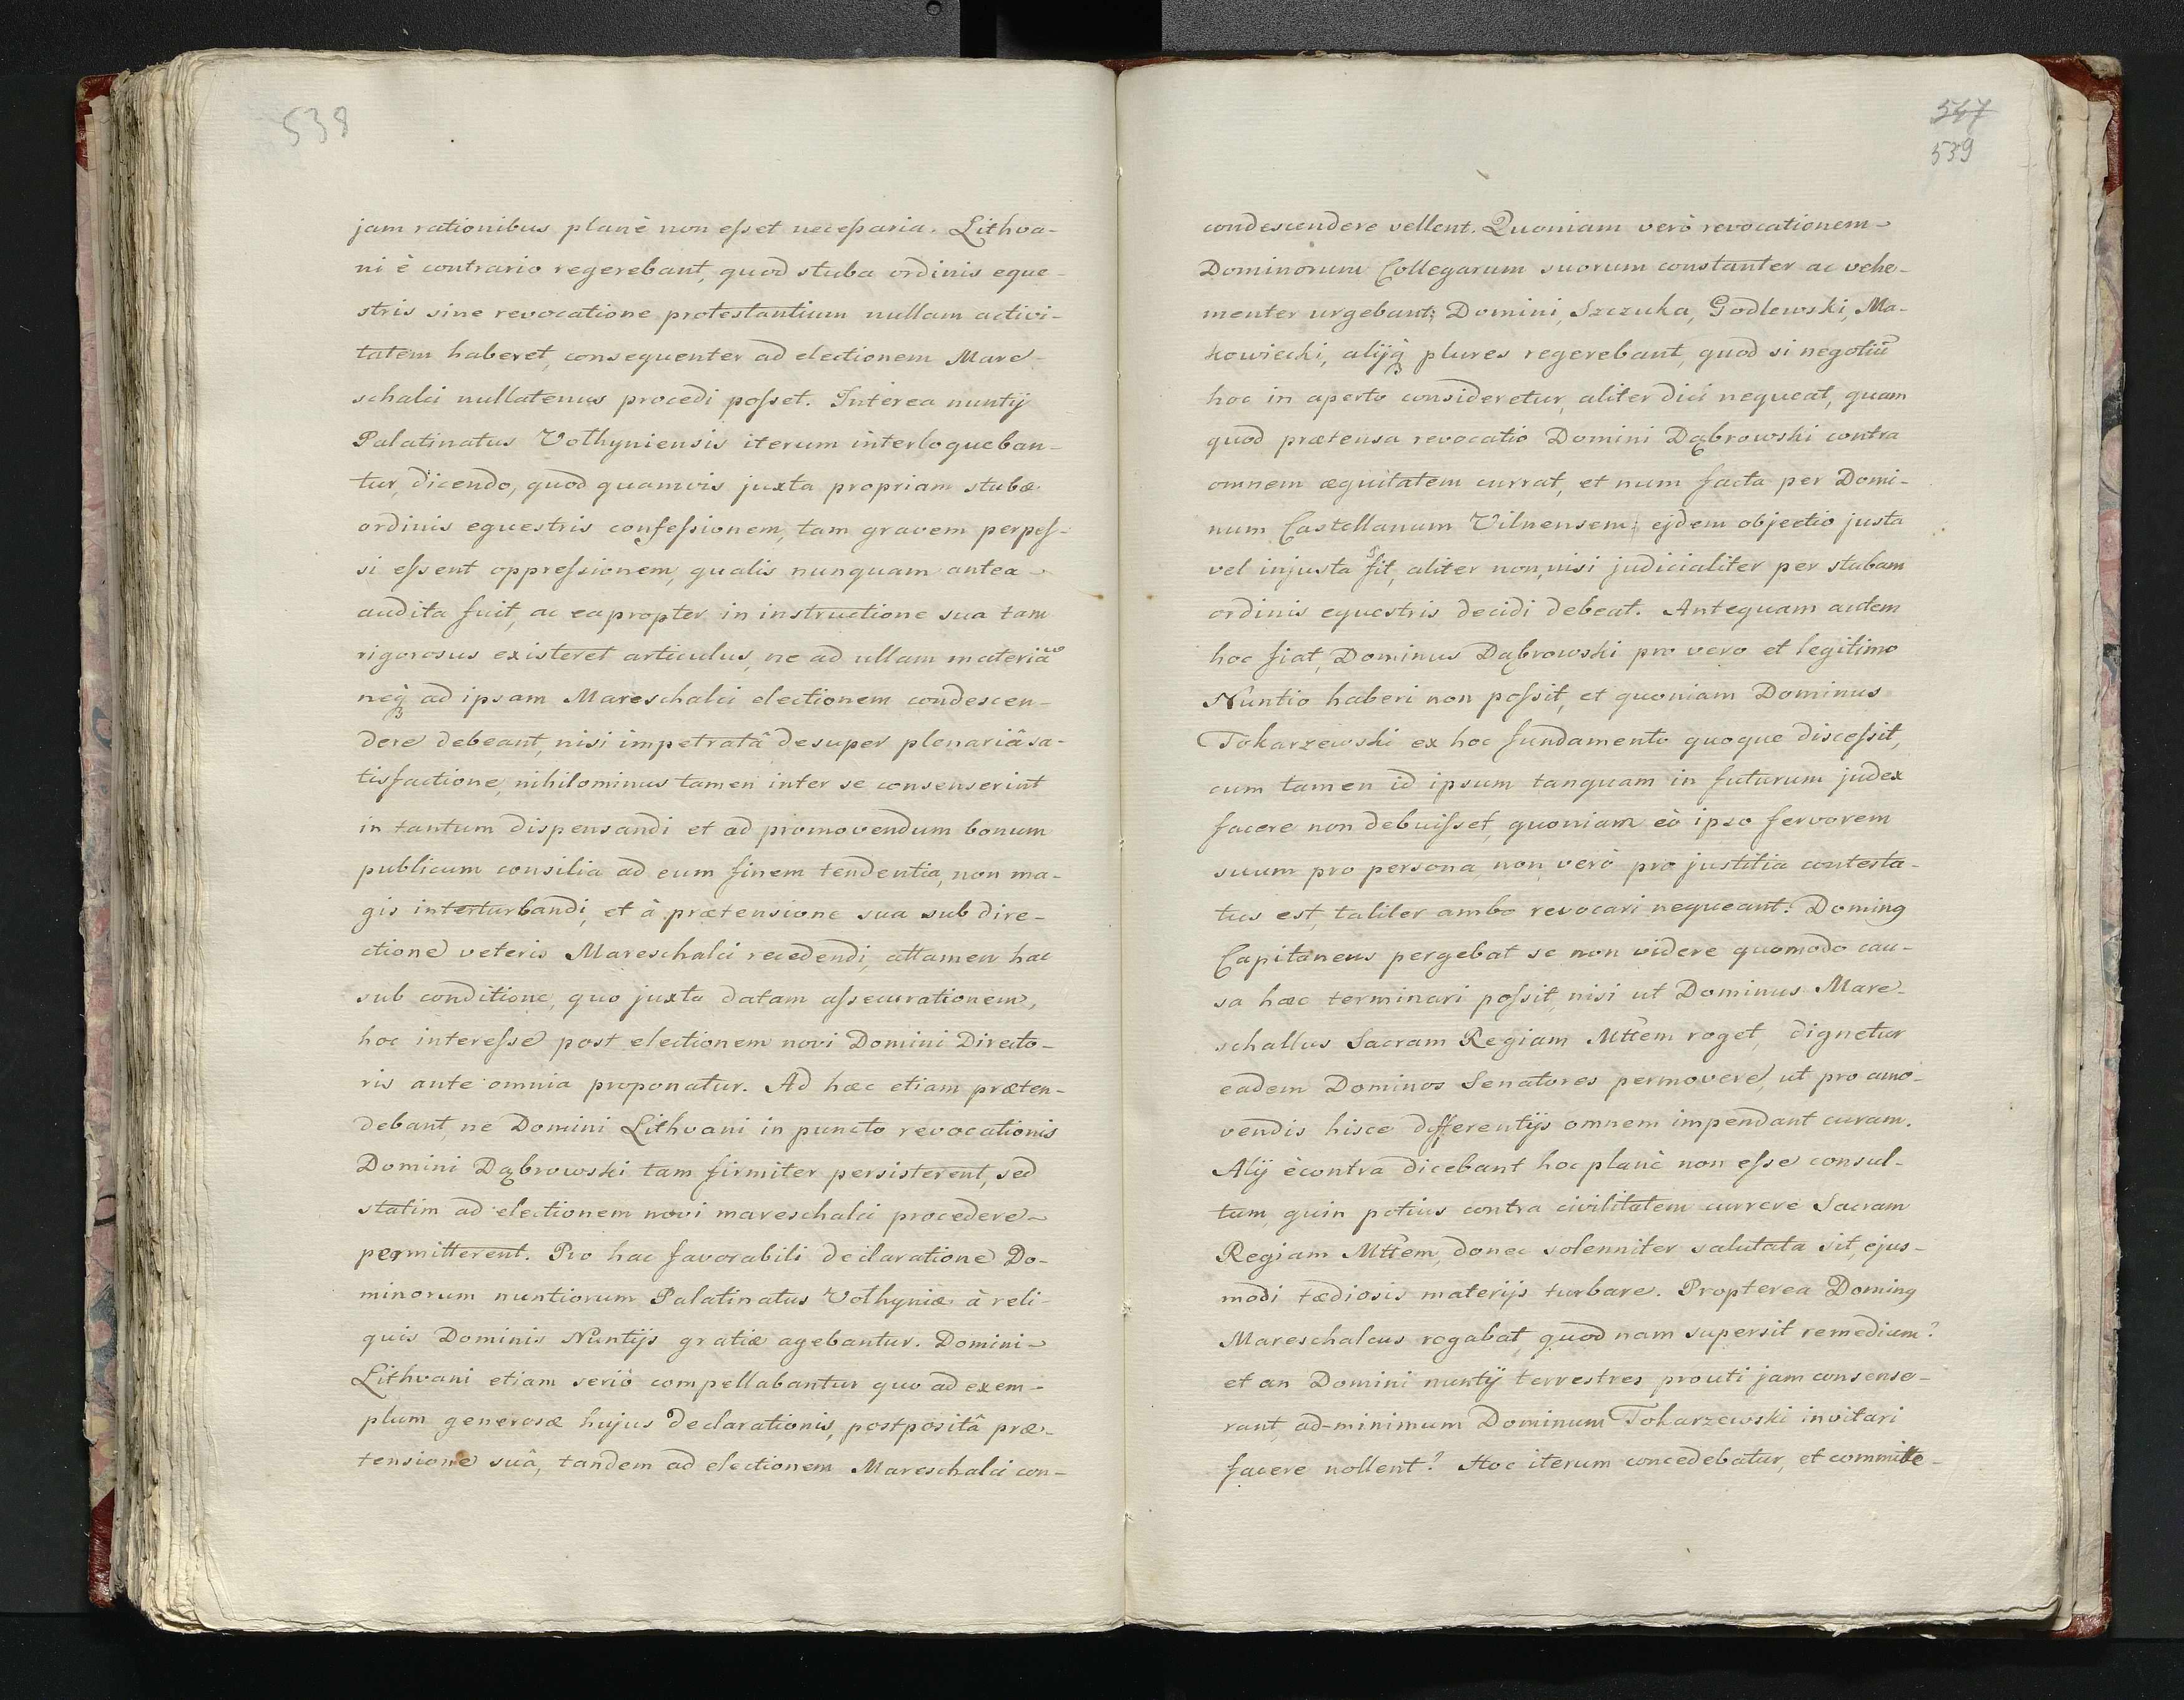 538
jam rationibus planè non eſset neceſsaria. Lithva-
ni è contrario regerebant, quod stuba ordinis eque-
stris sine revocatione protestantium nullam activi-
tatem haberet, consequenter ad electionem Mare-
schalci nullatenus procedi poſset. Interea nuntij
Palatinatus Volhyniensis iterum interloqueban-
tur, dicendo, quod quamvis juxta propriam stubæ
ordinis equestris confeſsionem, tam gravem perpeſ-
si eſsent oppreſsionem, qualis nunquam antea
audita fuit, ac eapropter in instructione sua tam
rigorosus existeret articulus, ne ad ullam materiã
neq̃ ad ipsam Mareschalci electionem condescen-
dere debeant, nisi impetratâ desuper plenariâ sa-
tisfactione, nihilominus tamen inter se consenserint
in tantum dispensandi et ad promovendum bonum
publicum consilia ad eum finem tendentia, non ma-
gis interturbandi, et à prætensione sua sub dire-
ctione veteris Mareschalci recedendi, attamen hac
sub conditione, quo juxta datam aſsecurationem,
hoc intereſse post electionem novi Domini Directo-
ris ante omnia proponatur. Ad hæc etiam præten-
debant, ne Domini Lithvani in puncto revocationis
Domini Dąbrowski tam firmiter persisterent, sed
statim ad electionem novi mareschalci procedere
permitterent. Pro hac favorabili declaratione Do-
minorum nuntiorum Palatinatus Volhyniæ à reli-
quis Dominis Nuntijs gratiæ agebantur. Domini
Lithvani etiam seriò compellabantur quo ad exem-
plum generosæ hujus declarationis, postpositâ præ-
tensione suâ, tandem ad electionem Mareschalci con-
547
539
condescendere vellent. Quoniam verò revocationem
Dominorum Collegarum suorum constanter ac vehe-
menter urgebant; Domini, Szczuka, Godlewski, Ma-
kowiecki, alijq̃ plures regerebant, quod si negotiũ
hoc in aperto consideretur, aliter dici nequeat, quam
quod prætensa revocatio Domini Dąbrowski contra
omnem æquitatem currat, et num facta per Domi-
num Castellanum Vilnensem; ejdem objectio justa
vel injusta sit, aliter non, nisi judicialiter per stubam
ordinis equestris decidi debeat. Antequam autem
hoc fiat, Dominus Dąbrowski pro vero et legitimo
Nuntio haberi non poſsit, et quoniam Dominus
Tokarzewski ex hoc fundamento quoque disceſsit,
cum tamen id ipsum tanquam in futurum judex
facere non debuiſset, quoniam eò ipso fervorem
suum pro persona, non verò pro justitia contesta-
tus est, taliter ambo revocari nequeant. Dominꝰ
Capitaneus pergebat se non videre quomodo cau-
sa hæc terminari poſsit, nisi ut Dominus Mare-
schallus Sacram Regiam Mttem roget, dignetur
eadem Dominos Senatores permovere, ut pro amo-
vendis hisce differentijs omnem impendant curam.
Alij ècontra dicebant hoc planè non eſse consul-
tum, quin potius contra civilitatem currere Sacram
Regiam Mttem, donec solenniter salutata sit, ejus-
modi tædiosis materijs turbare. Propterea Dominꝰ
Mareschalcus rogabat, quod nam supersit remedium?
et an Domini nuntij terrestres prouti jam consense-
rant, ad-minimum Dominum Tokarzewski invitari
facere nollent? Hoc iterum concedebatur, et committe-